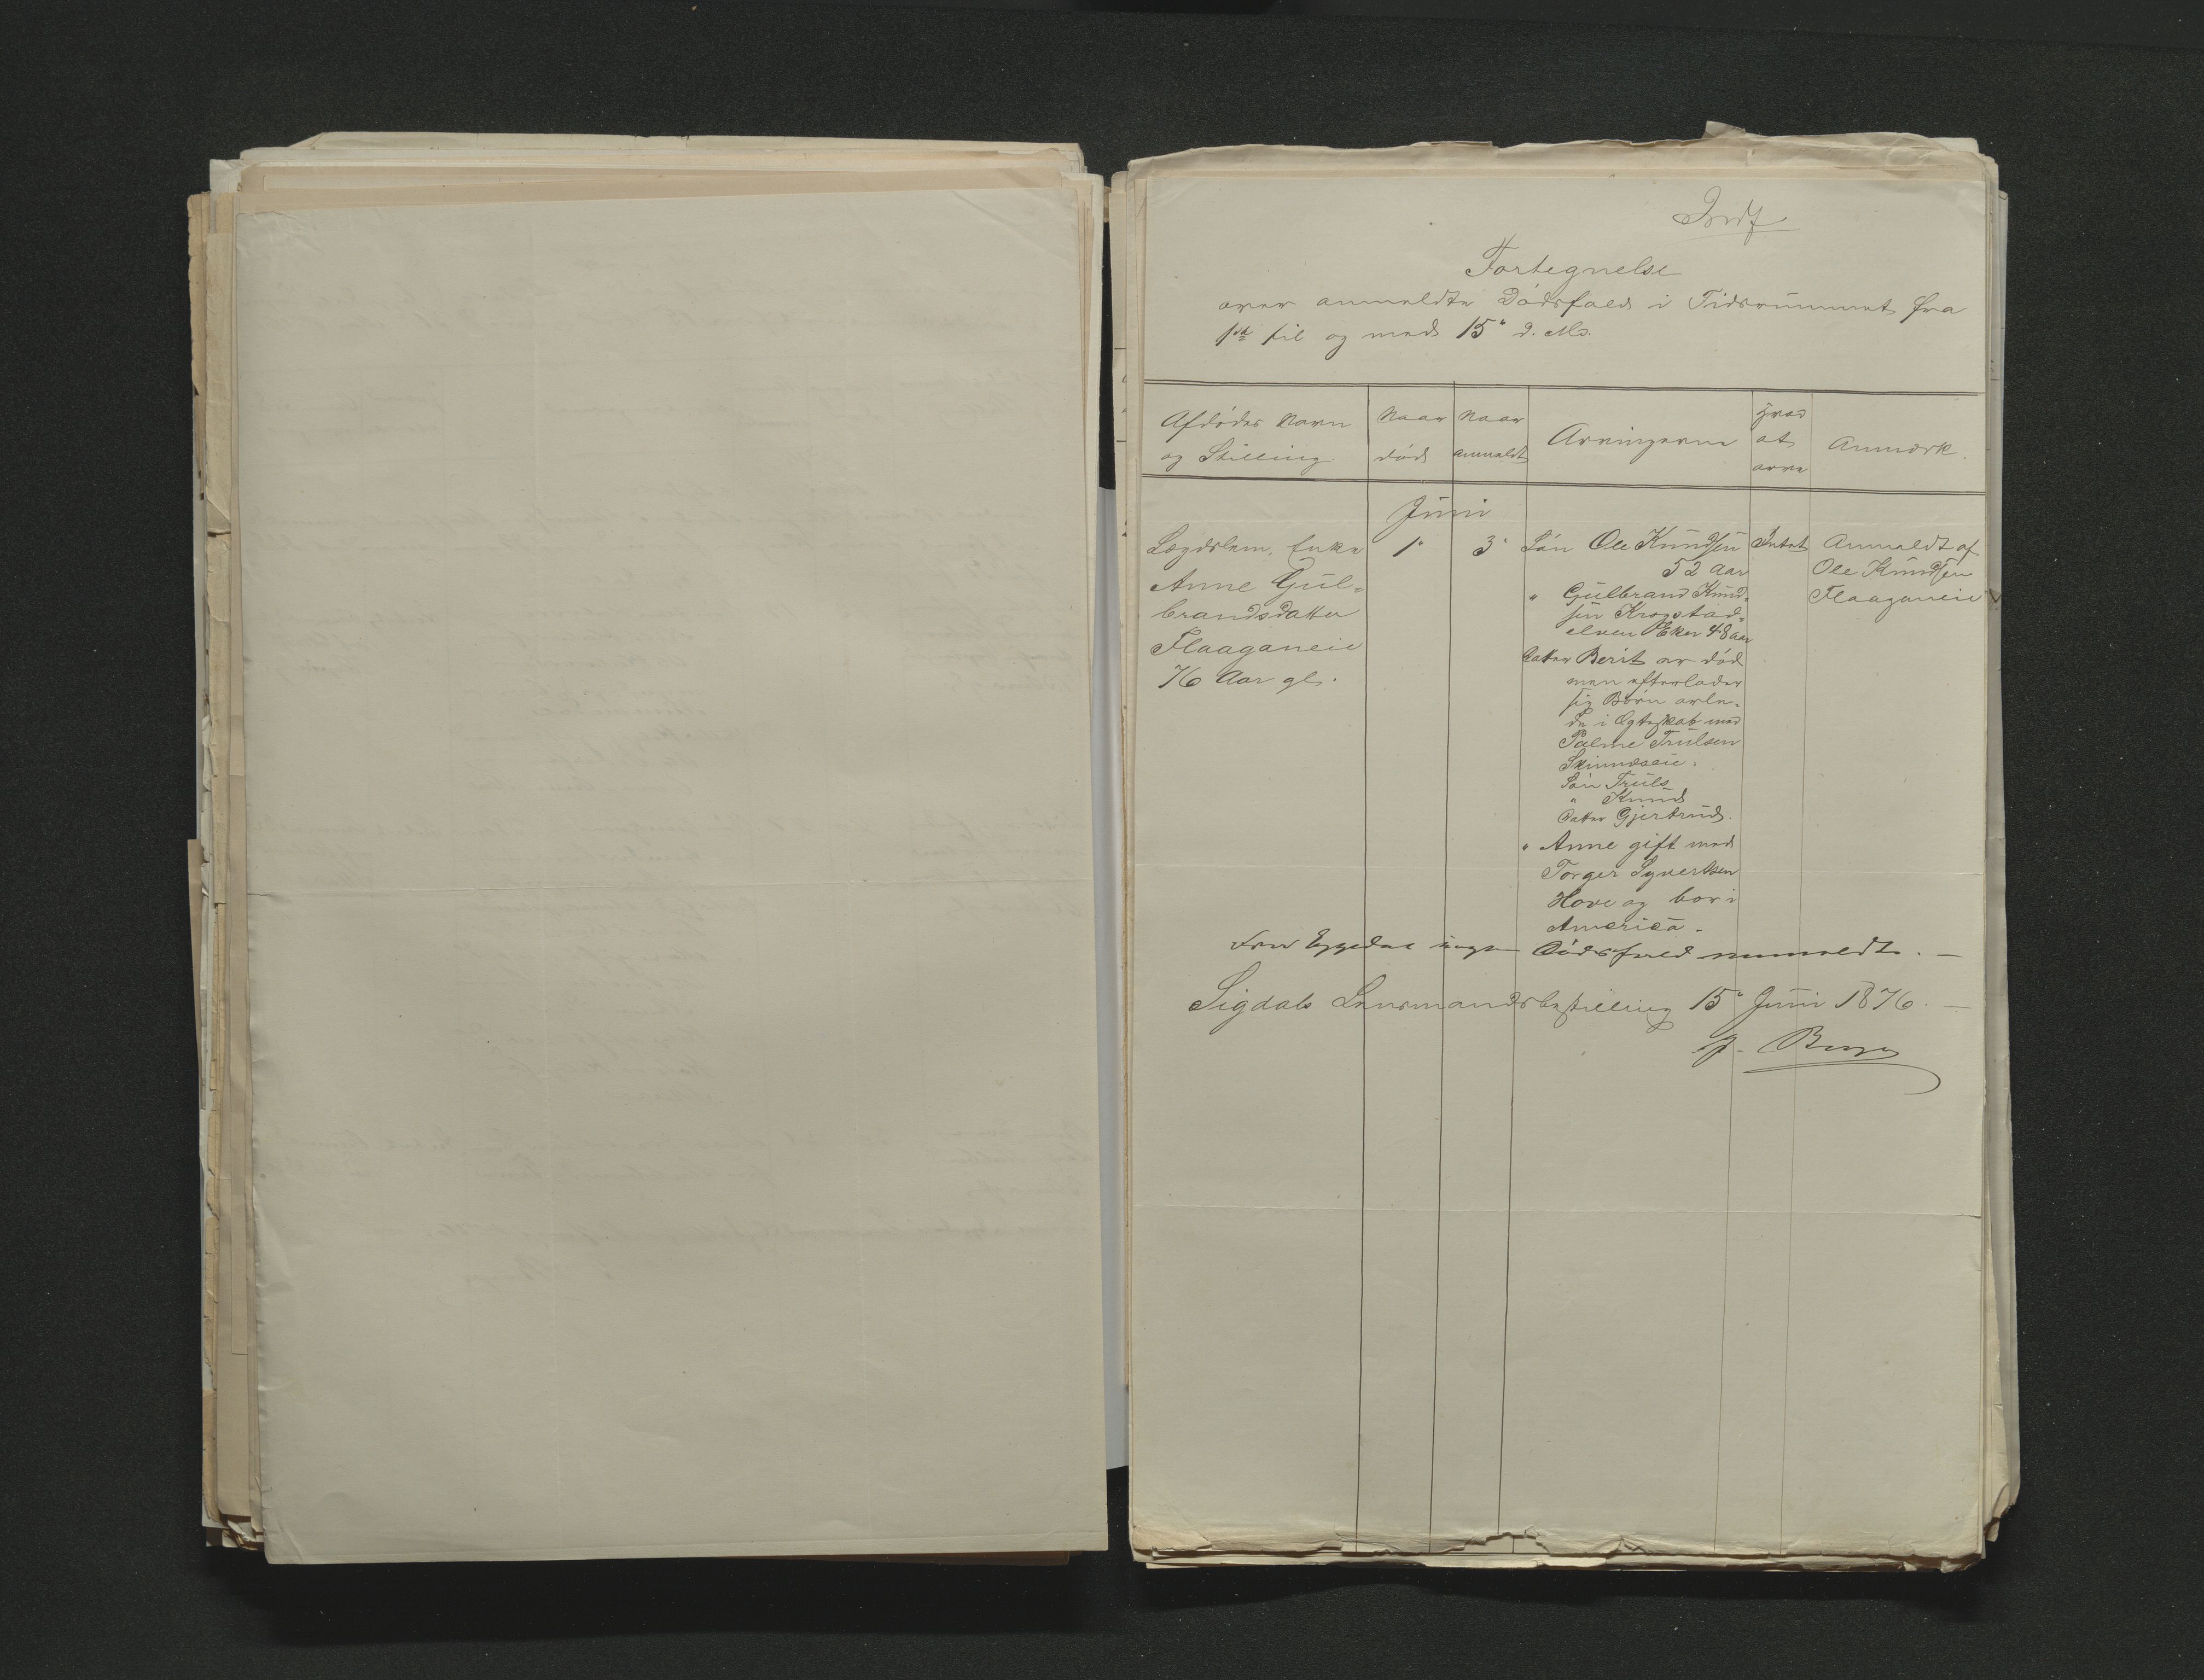 Indf
Fortegnelse
over anmeldte Dødsfald i Tidsrummet fra
1ste til og med 15de d. Md.
Afdødes Navn og Stilling
Naar død
Naar anmeldt
Arvingerne
Hvad at arve
Anmærk.
Juni
Lægdslem, Enke
Anne Gul-
brandsdatter
Flaaganeie
76 Aar gl.
1"
3"
Søn Ole Knudsen
52 Aar
" Gulbrand Knud-
sen Krogstad-
elven Eker 48 aar
Datter Berit er død
men efterlader
sig Børn avle-
de i Ægteskab med
Palme Trulsen
Skinnæseie.
Søn Truls
" Knud
Datter Gjertrud.
" Anne gift med
Torger Syvertsen
Hove og bor i
America.
Intet
Anmeldt af
Ole Knudsen
Flaaganeie
Fra Eggedal ingen Dødsfald anmeldt. —
Sigdals Lensmandsbestilling 15" Juni 1876. —